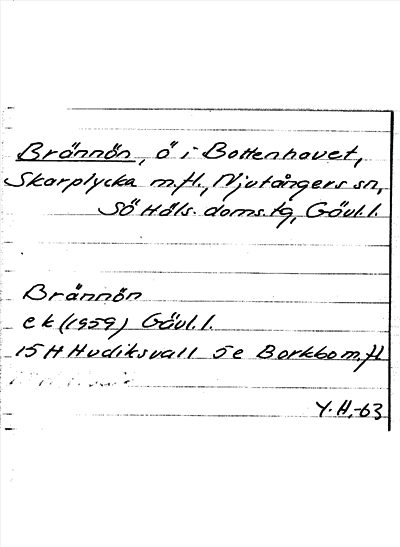 Brännön, ö i Bottenhavet,
Skarplycka m.fl., Njutångers sn,
SÖ Häls. doms.tg, Gävl.l.
Brännön
ek (1959) Gävl.l.
15 H Hudiksvall 5e Borkbo m.fl
Y.H.-63